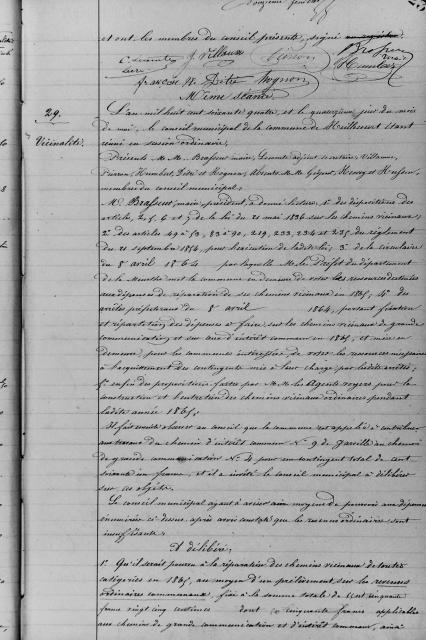 et ont les membres du conseil présents, signé
J. Villaux
Brasseur
Humbert
françois Petre Hognon
Même séance
29.
Vicinalité.
L'an mil huit cent soixante quatre, et le quatorzième jour du mois
de mai, le conseil municipal de la commune de étant
réuni en session ordinaire,
Présents M.M. Brasseur maire, adjoint Villaume,
Pierson, Humbert, Petre et Hognon, Absents M.M. Henry et
membres du conseil municipal,
M. Brasseur, maire président a donné lecture 1° des dispositions des
articles, 2, 5, 6 et 7 de la loi du 21 mai 1836 sur les chemins vicinaux;
2° des articles 49 à 53, 83 à 90, 219, 233, 234 et 235 du règlement
du 21 septembre 1854, pour l'exécution de ladite loi; 3° de la circulaire
du 8 avril 1864 par laquelle M. le Préfet du département
de la Meurthe met la commune en demeure de voter les ressources destinées
aux dépenses de réparation de ses chemins vicinaux en 1865; 4° des
arrêtés préfectoraux du 8 avril 1864, portant fixation
et répartition des dépenses à faire sur les chemins vicinaux de grande
communication et sur ceux d'intérêt commun en 1865, et mise en
demeure, pour les communes intéressées de voter les ressources nécessaires
à l'acquittement des contingents mis à leur charge par lesdits arrêtés;
5° enfin des propositions faites par M.M. les Agents voyers pour la
construction et l'entretien des chemins vicinaux ordinaires pendant
ladite année 1865;
Il fait ensuite observer au conseil que la commune est appelée à contribuer
aux travaux du chemin d'intérêt commun N° 9 de au chemin
de grande communication N° 4 pour un contingent total de cent
francs, et il a invité le conseil municipal à délibérer
sur ces objets.
Le conseil municipal ayant à aviser aux moyens de pourvoir aux dépenses
énumérées ci-dessus, après avoir constaté que les revenus ordinaires sont
insuffisants,
A délibéré,
1° Qu'il serait pourvu à la réparation des chemins vicinaux de toutes
catégories en 1865, au moyen d'un prélèvement sur les revenus
ordinaires communaux, fixé à la somme totale de cent cinquante
francs vingt cinq centimes dont cinquante francs applicables
aux chemins de grande communication et d'intérêt commun, ainsi